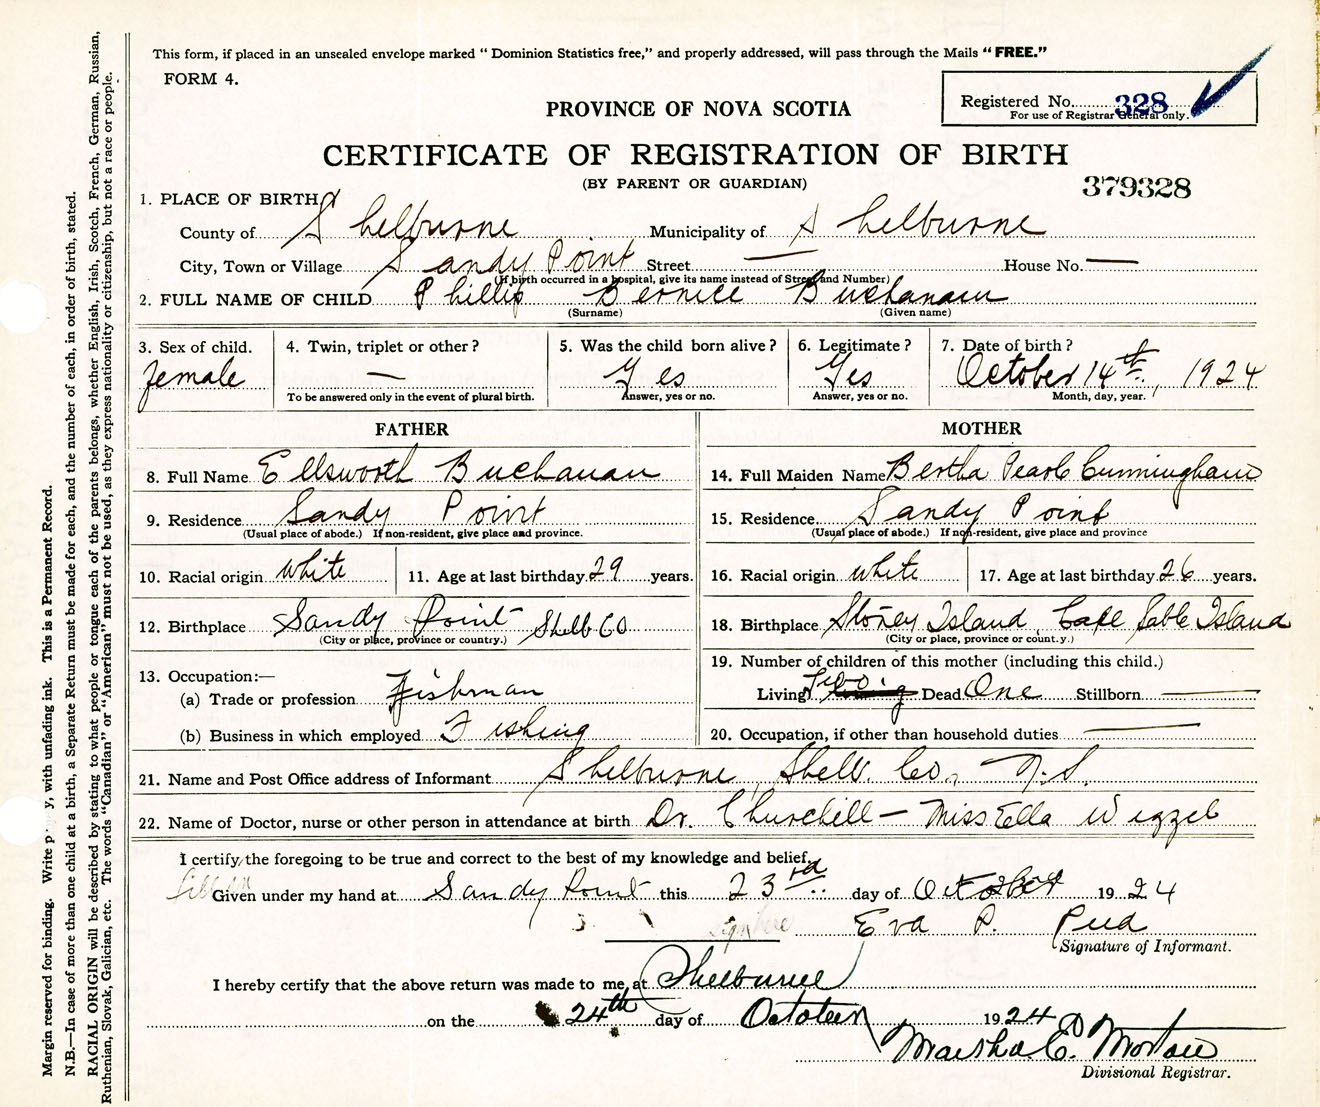 This form, if placed in an unsealed envelope marked “ Dominion Statistics free,” and properly addressed, will pass through the Mails “ FREE.”
FORM 4.
Registered No. 328
For use of Registrar General only.
PROVINCE OF NOVA SCOTIA
CERTIFICATE OF REGISTRATION OF BIRTH
(BY PARENT OR GUARDIAN)
379328
1. PLACE OF BIRTH
County of Shelburne Municipality of Shelburne
City, Town or Village Sandy Point Street — House No. —
(If birth occurred in a hospital, give its name instead of Street and Number)
2. FULL NAME OF CHILD Phillip Bernice Buchanan
(Surname) (Given name)
3. Sex of child. 4. Twin, triplet or other ? 5. Was the child born alive ? 6. Legitimate ? 7. Date of birth ?
female — Yes Yes October 14th, 1924
To be answered only in the event of plural birth. Answer, yes or no. Answer, yes or no. Month, day, year.
FATHER MOTHER
8. Full Name Ellsworth Buchanan
14. Full Maiden Name Bertha Pearl Cunningham
9. Residence Sandy Point
(Usual place of abode.) If non-resident, give place and province.
15. Residence Sandy Point
(Usual place of abode.) If non-resident, give place and province
10. Racial origin white 11. Age at last birthday 29 years.
16. Racial origin white 17. Age at last birthday 26 years.
12. Birthplace Sandy Point Shelb Co
(City or place, province or country.)
18. Birthplace Stoney Island, Cape Sable Island
(City or place, province or count.y.)
13. Occupation:—
(a) Trade or profession Fishman
(b) Business in which employed Fishing
19. Number of children of this mother (including this child.)
Living Two Dead One Stillborn —
20. Occupation, if other than household duties —
21. Name and Post Office address of Informant Shelburne, Shelb. Co, N.S.
22. Name of Doctor, nurse or other person in attendance at birth Dr. Churchill — Miss Ella Wizzel
I certify the foregoing to be true and correct to the best of my knowledge and belief.
Given under my hand at Sandy Point this 23rd day of October 1924
sign here Eva P.
Signature of Informant.
I hereby certify that the above return was made to me at Shelburne
on the 24th day of October 1924
Divisional Registrar.
Margin reserved for binding. Write with unfading ink. This is a Permanent Record.
N.B.—In case of more than one child at a birth, a Separate Return must be made for each, and the number of each, in order of birth, stated.
RACIAL ORIGIN will be described by stating to what people or tongue each of the parents belongs, whether English, Irish, Scotch, French, German, Russian,
Ruthenian, Slovak, Galician, etc. The words “Canadian” or “American” must not be used, as they express nationality or citizenship, but not a race or people.